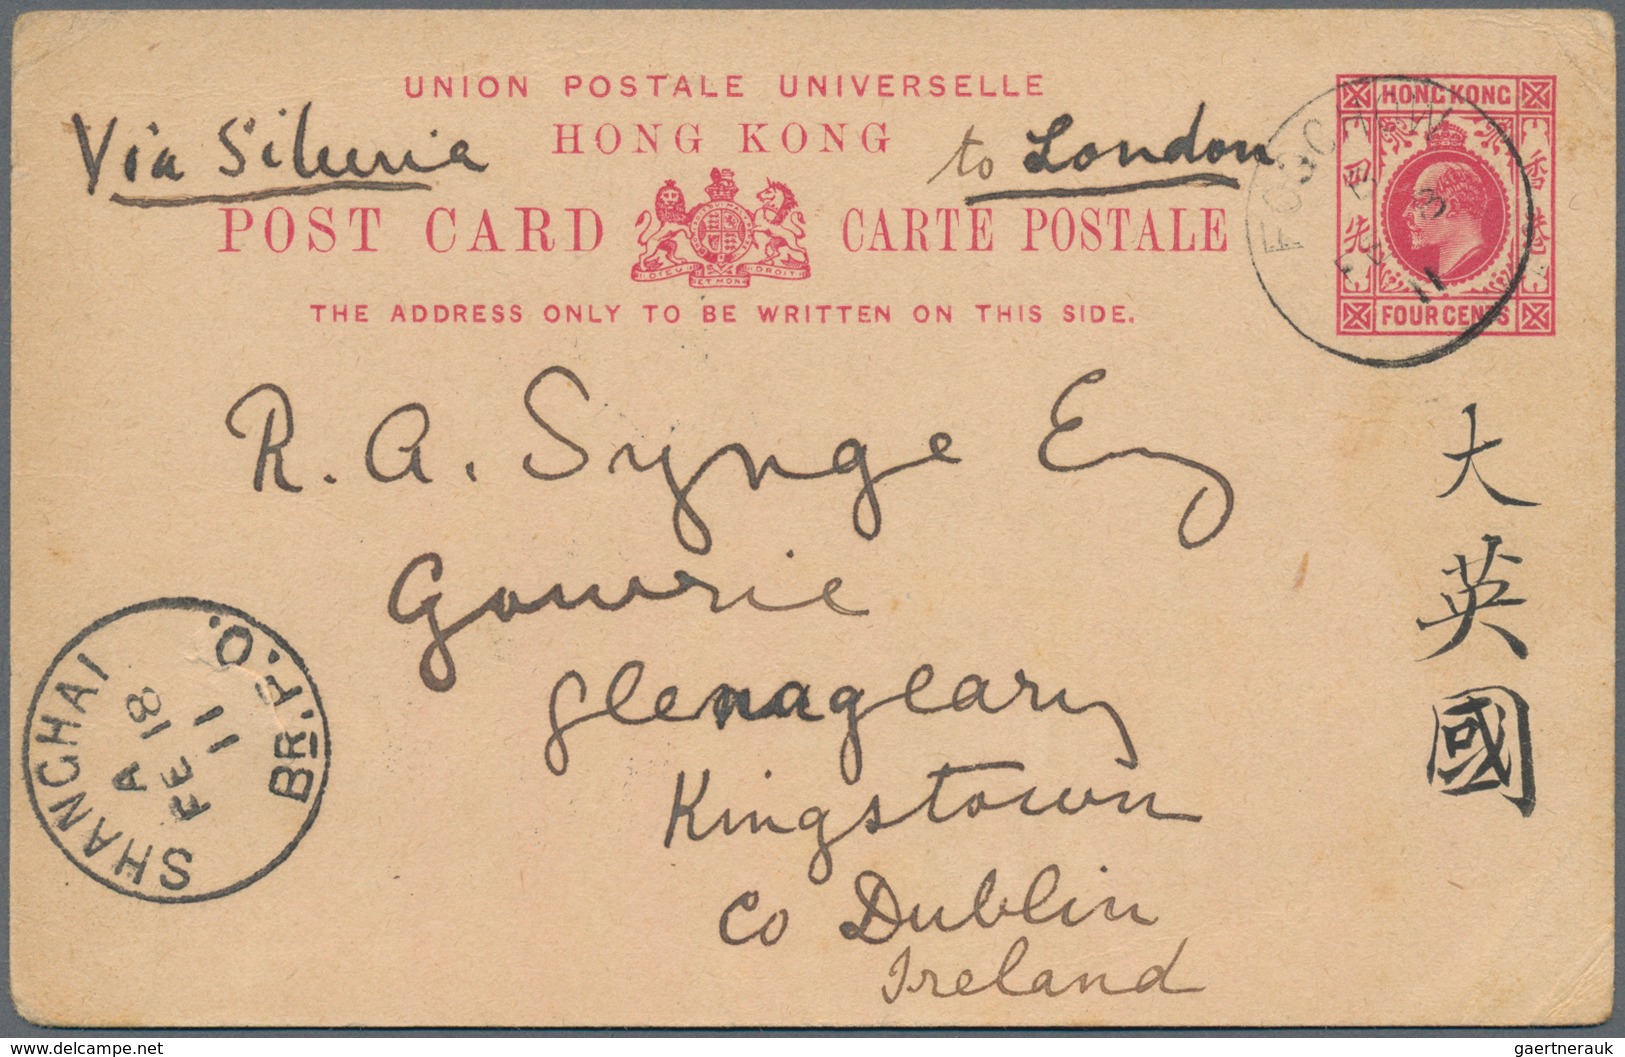 UNION POSTALE UNIVERSELLE
Via Siberia HONG KONG to London
POST CARD CARTE POSTALE
DIEU ET MON DROIT
THE ADDRESS ONLY TO BE WRITTEN ON THIS SIDE.
HONG KONG
香港
四先
FOUR CENTS
FOOCHOW
B
FE 13
11
R. A. Synge Esq
Gowrie
Glenageary
Kingstown
Co Dublin
Ireland
大英國
SHANGHAI BR. P.O.
A
FE 18
11
delcampe.net
gaertnerauk